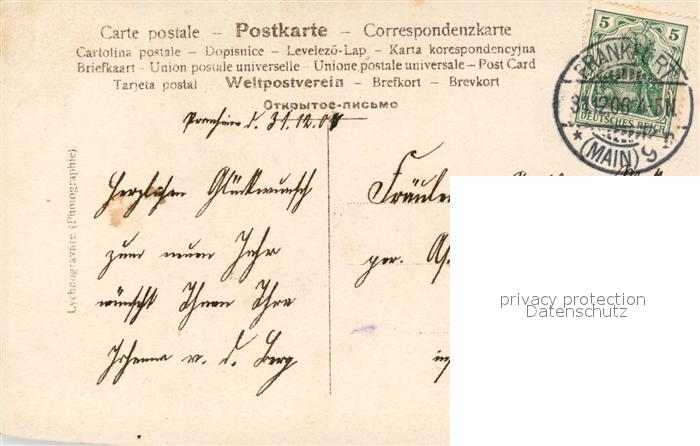 Carte postale – Postkarte – Correspondenzkarte
Cartolina postale – Dopisnice – Levelező-Lap – Karta korespondencyjna
Briefkaart – Union postale universelle – Unione postale universale – Post Card
Tarjeta postal Weltpostverein – Brefkort – Brevkort
Открытое-письмо
5 5
FRANKFURT
31.12.06. 4-5N.
DEUTSCHES REICH
* (MAIN) 9
d. 31.12.06
Lychnogravüre (Photographie).
Herzlichen Glückwunsch
zum neuen Jahr
wünscht Ihnen Ihre
Johanna v. d. Berg
Fräulein
per.
privacy protection
Datenschutz